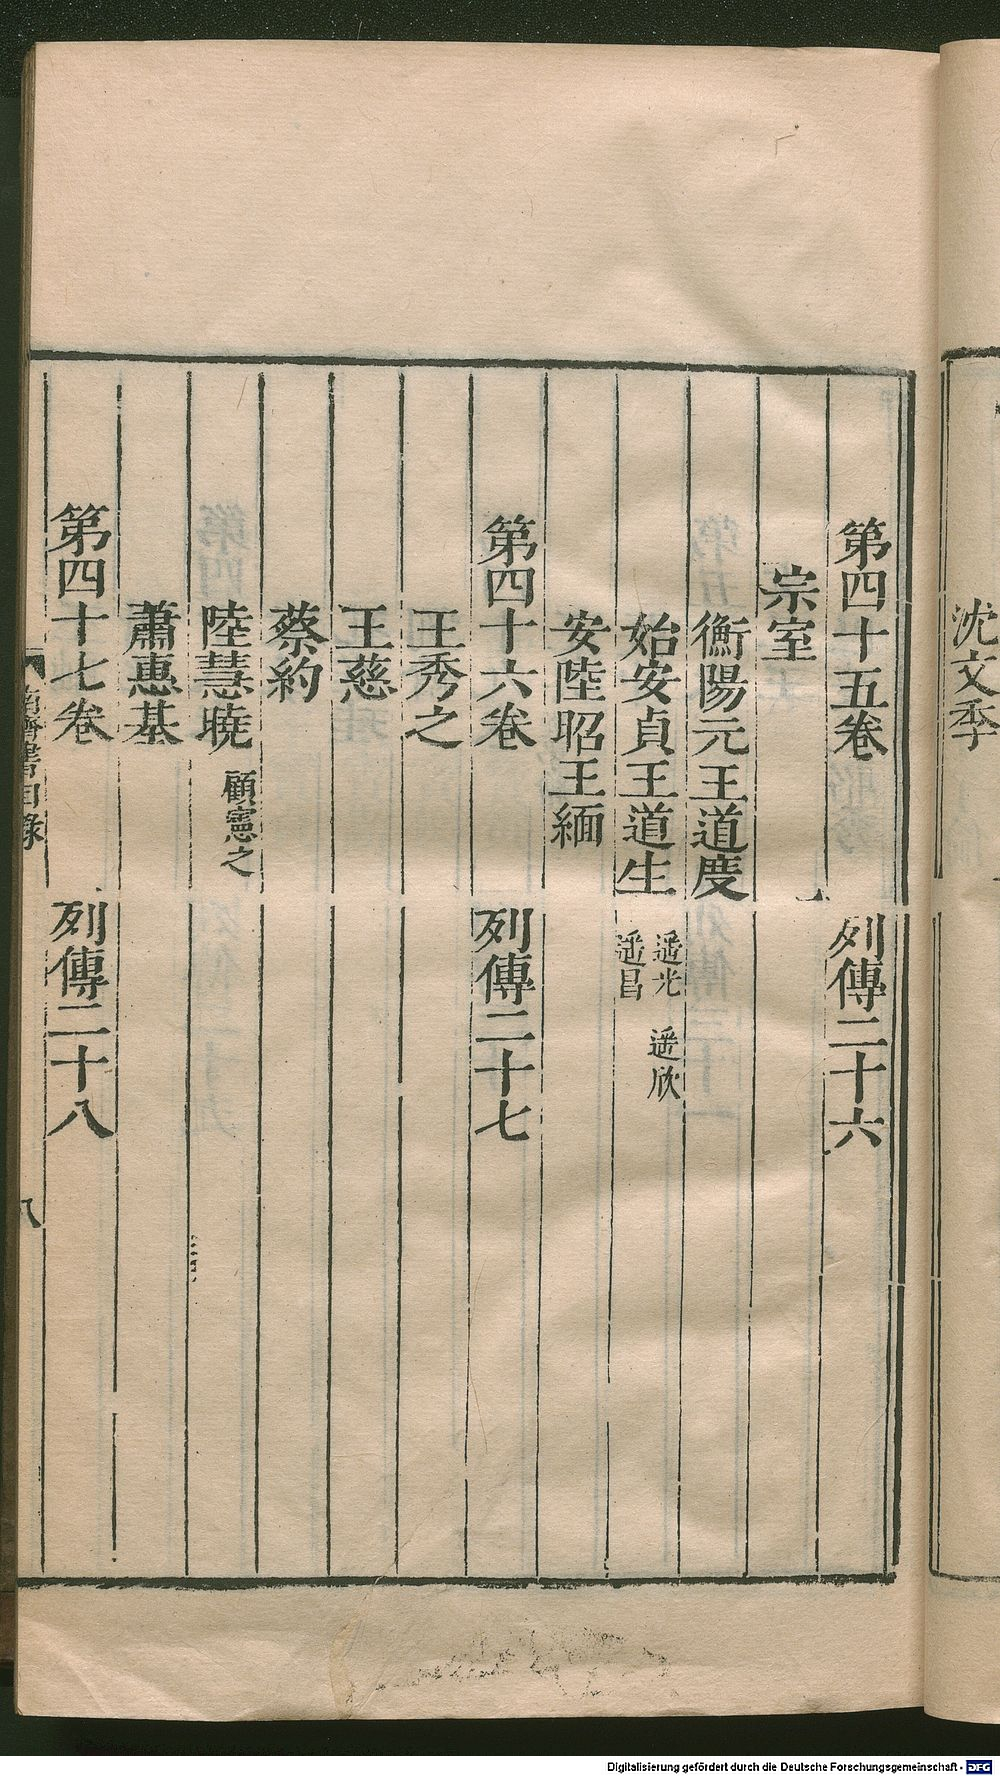 沈文季
第四十五卷 列傳二十六
宗室
衡陽元王道度
始安貞王道生 遥光 遥欣 遥昌
安陸昭王緬
第四十六卷 列傳二十七
王秀之
王慈
蔡約
陸慧曉 顧憲之
蕭惠基
第四十七卷 列傳二十八
南齊書目錄 八
Digitalisierung gefördert durch die Deutsche Forschungsgemeinschaft - DFG